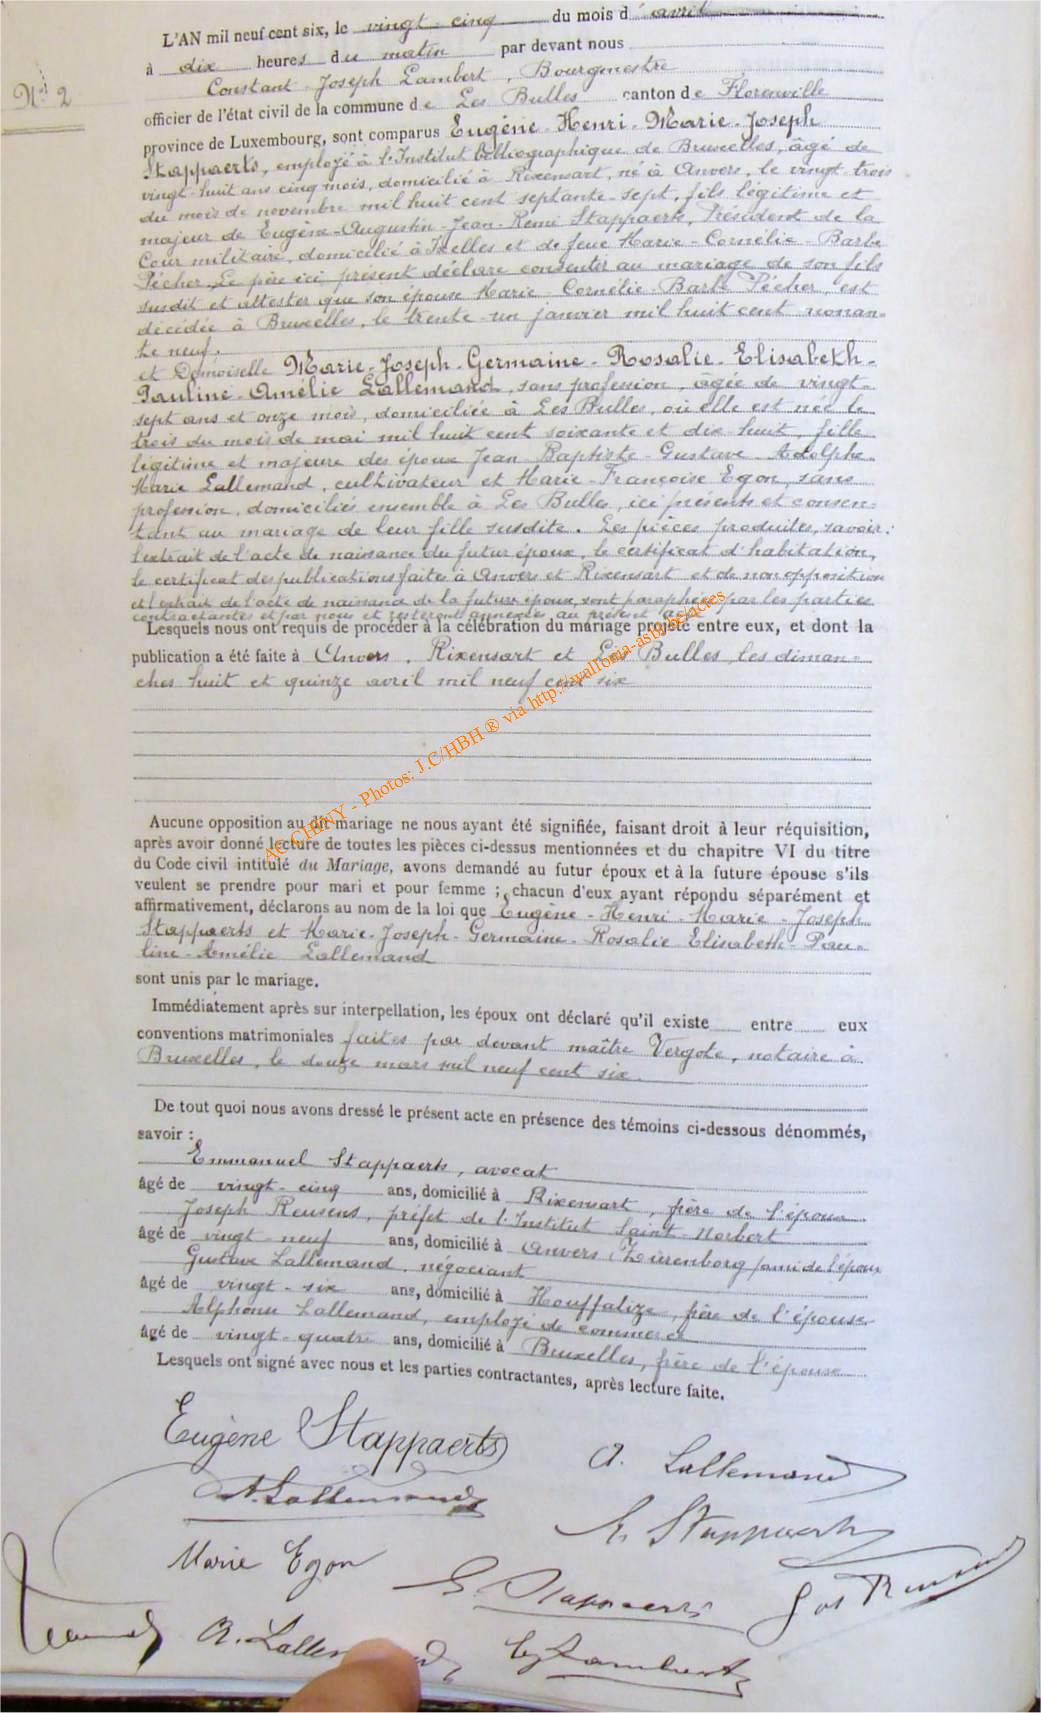 N° 2
L'AN mil neuf cent six, le vingt-cinq du mois d'avril
à dix heures du matin par devant nous
Constant-Joseph Lambert, Bourgmestre
officier de l'état civil de la commune de Les Bulles canton de Florenville
province de Luxembourg, sont comparus Eugène-Henri-Marie-Joseph
Stappaerts, employé à l'Institut bibliographique de Bruxelles, âgé de
vingt-huit ans cinq mois, domicilié à Rixensart, né à Anvers, le vingt-trois
du mois de novembre mil huit cent septante-sept, fils légitime et
majeur de Eugène-Augustin-Jean-Remi Stappaerts, Président de la
Cour militaire, domicilié à Ixelles et de feue Marie-Cornélie-Barbe
Pécher. Le père ici présent déclare consentir au mariage de son fils
susdit et attester que son épouse Marie-Cornélie-Barbe Pécher, est
décédée à Bruxelles, le trente-un janvier mil huit cent nonan-
te neuf.
et Demoiselle Marie-Joseph-Germaine-Rosalie-Elisabeth-
Pauline-Amélie Lallemand, sans profession, âgée de vingt-
sept ans et onze mois, domiciliée à Les Bulles, où elle est née le
trois du mois de mai mil huit cent soixante et dix-huit, fille
légitime et majeure des époux Jean-Baptiste-Gustave-Adolphe-
Marie Lallemand, cultivateur et Marie-Françoise Egon, sans
profession, domiciliés ensemble à Les Bulles, ici présents et consen-
tant au mariage de leur fille susdite. Les pièces produites, savoir:
l'extrait de l'acte de naissance du futur époux, le certificat d'habitation,
le certificat des publications faites à Anvers et Rixensart et de non opposition
et l'extrait de l'acte de naissance de la future épouse, sont paraphées par les parties
contractantes et par nous et resteront annexées au présent acte.
Lesquels nous ont requis de procéder à la célébration du mariage projeté entre eux, et dont la
publication a été faite à Anvers, Rixensart et Les Bulles, les diman-
ches huit et quinze avril mil neuf cent six
AC CHINY - Photos: J.C/HBH ® via http://wallonia-asbl.be/actes
Aucune opposition au dit mariage ne nous ayant été signifiée, faisant droit à leur réquisition,
après avoir donné lecture de toutes les pièces ci-dessus mentionnées et du chapitre VI du titre
du Code civil intitulé du Mariage, avons demandé au futur époux et à la future épouse s'ils
veulent se prendre pour mari et pour femme ; chacun d'eux ayant répondu séparément et
affirmativement, déclarons au nom de la loi que Eugène-Henri-Marie-Joseph
Stappaerts et Marie-Joseph-Germaine-Rosalie-Elisabeth-Pau-
line-Amélie Lallemand
sont unis par le mariage.
Immédiatement après sur interpellation, les époux ont déclaré qu'il existe entre eux
conventions matrimoniales faites par devant maître Vergote, notaire à
Bruxelles, le douze mars mil neuf cent six.
De tout quoi nous avons dressé le présent acte en présence des témoins ci-dessous dénommés,
savoir :
Emmanuel Stappaerts, avocat
âgé de vingt-cinq ans, domicilié à Rixensart, frère de l'époux
Joseph Reusens, préfet de l'Institut Saint-Norbert
âgé de vingt-neuf ans, domicilié à Anvers (Zurenborg) ami de l'époux
Gustave Lallemand, négociant
âgé de vingt-six ans, domicilié à Houffalize, frère de l'épouse
Alphonse Lallemand, employé de commerce
âgé de vingt-quatre ans, domicilié à Bruxelles, frère de l'épouse
Lesquels ont signé avec nous et les parties contractantes, après lecture faite.
Eugène Stappaerts
A. Lallemand
A. Lallemand
E. Stappaerts
Marie Egon
E. Stappaerts
Jos Reusens
A. Lallemand
Lambert